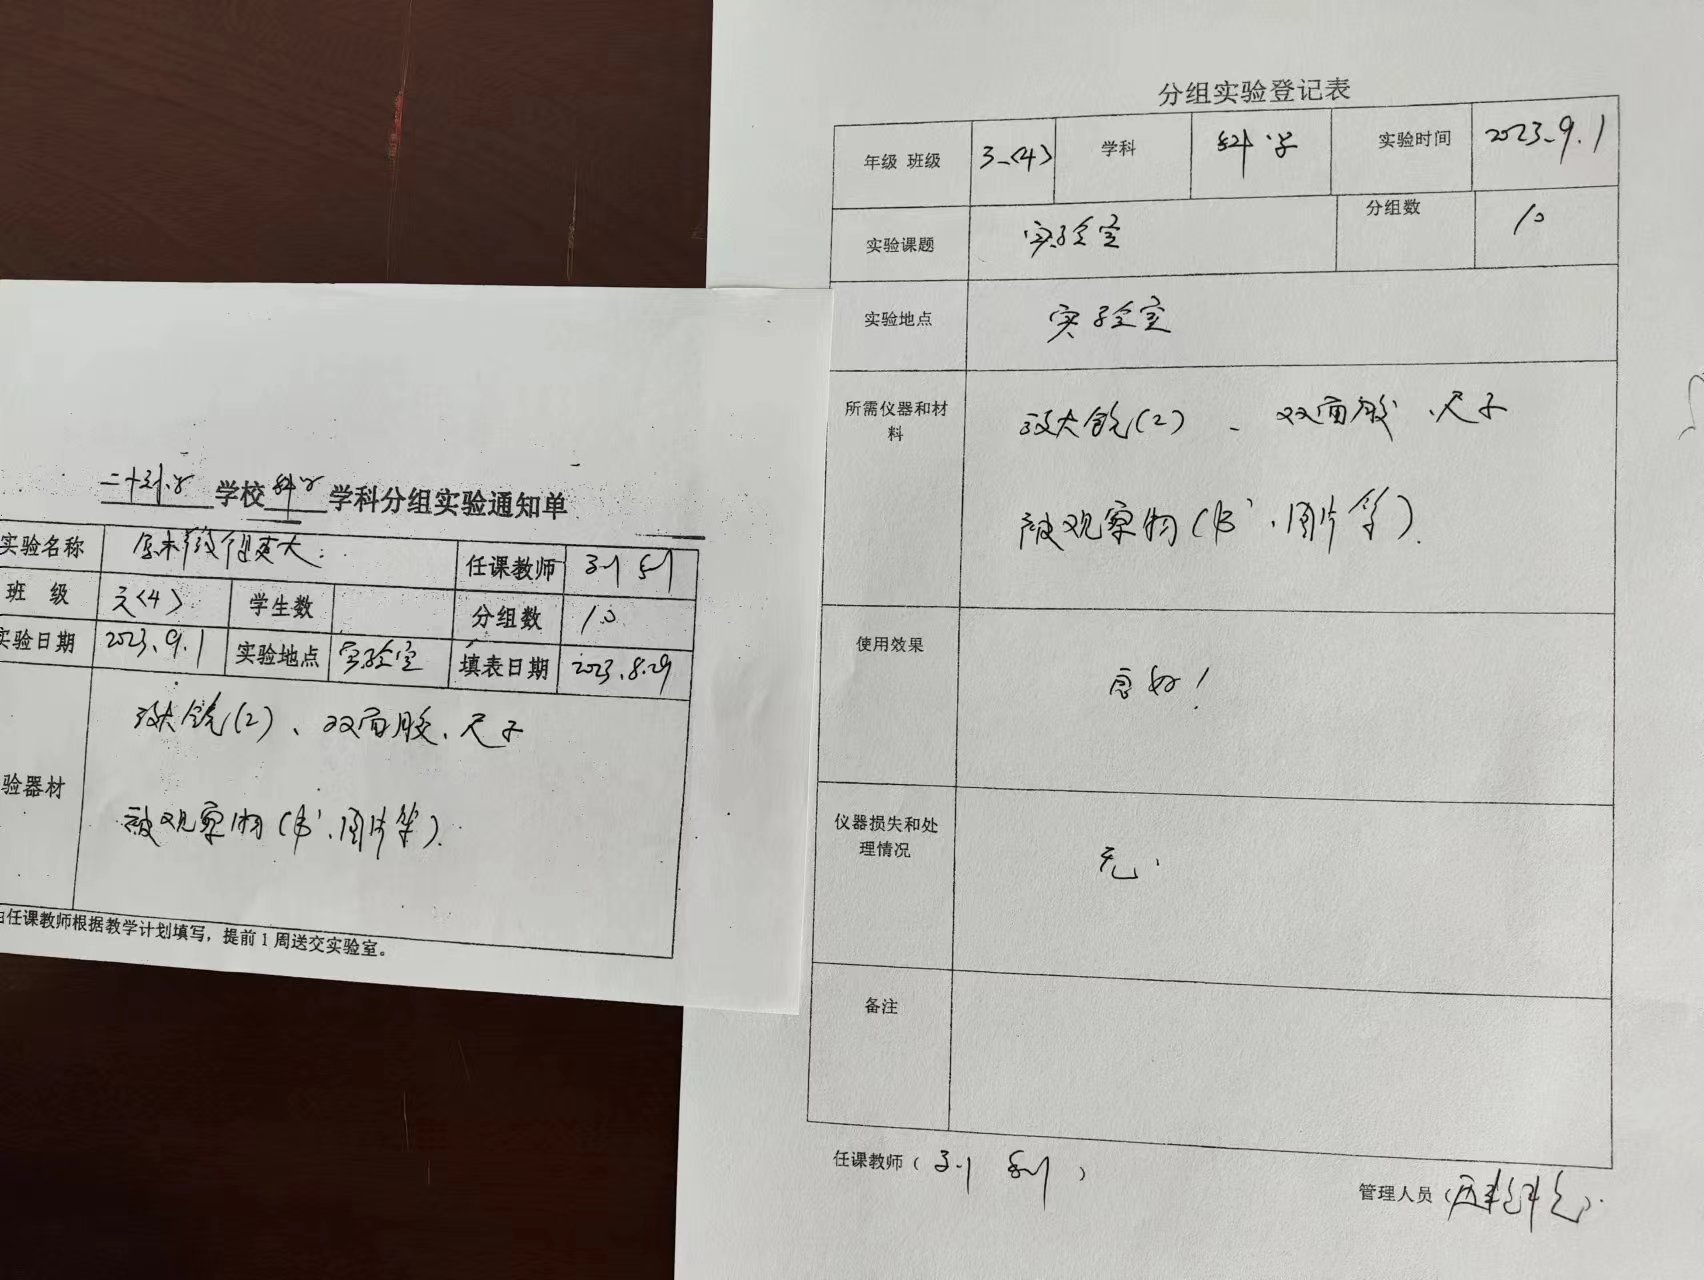 学校 科学 学科分组实验通知单
实验名称 任课教师
班 级 三<4> 学生数 分组数 10
实验日期 2023.9.1 实验地点 实验室 填表日期 2023.8.29
放大镜(2)、双面胶、尺子
验器材
被观察物(书、图片等).
由任课教师根据教学计划填写，提前1周送交实验室。
分组实验登记表
年级 班级 3.<4> 学科 科学 实验时间 2023.9.1
实验课题 实验室 分组数 10
实验地点 实验室
所需仪器和材 放大镜(2)、双面胶、尺子
料
被观察物(书、图片等).
使用效果 良好!
仪器损失和处
理情况 无.
备注
任课教师( )
管理人员( )